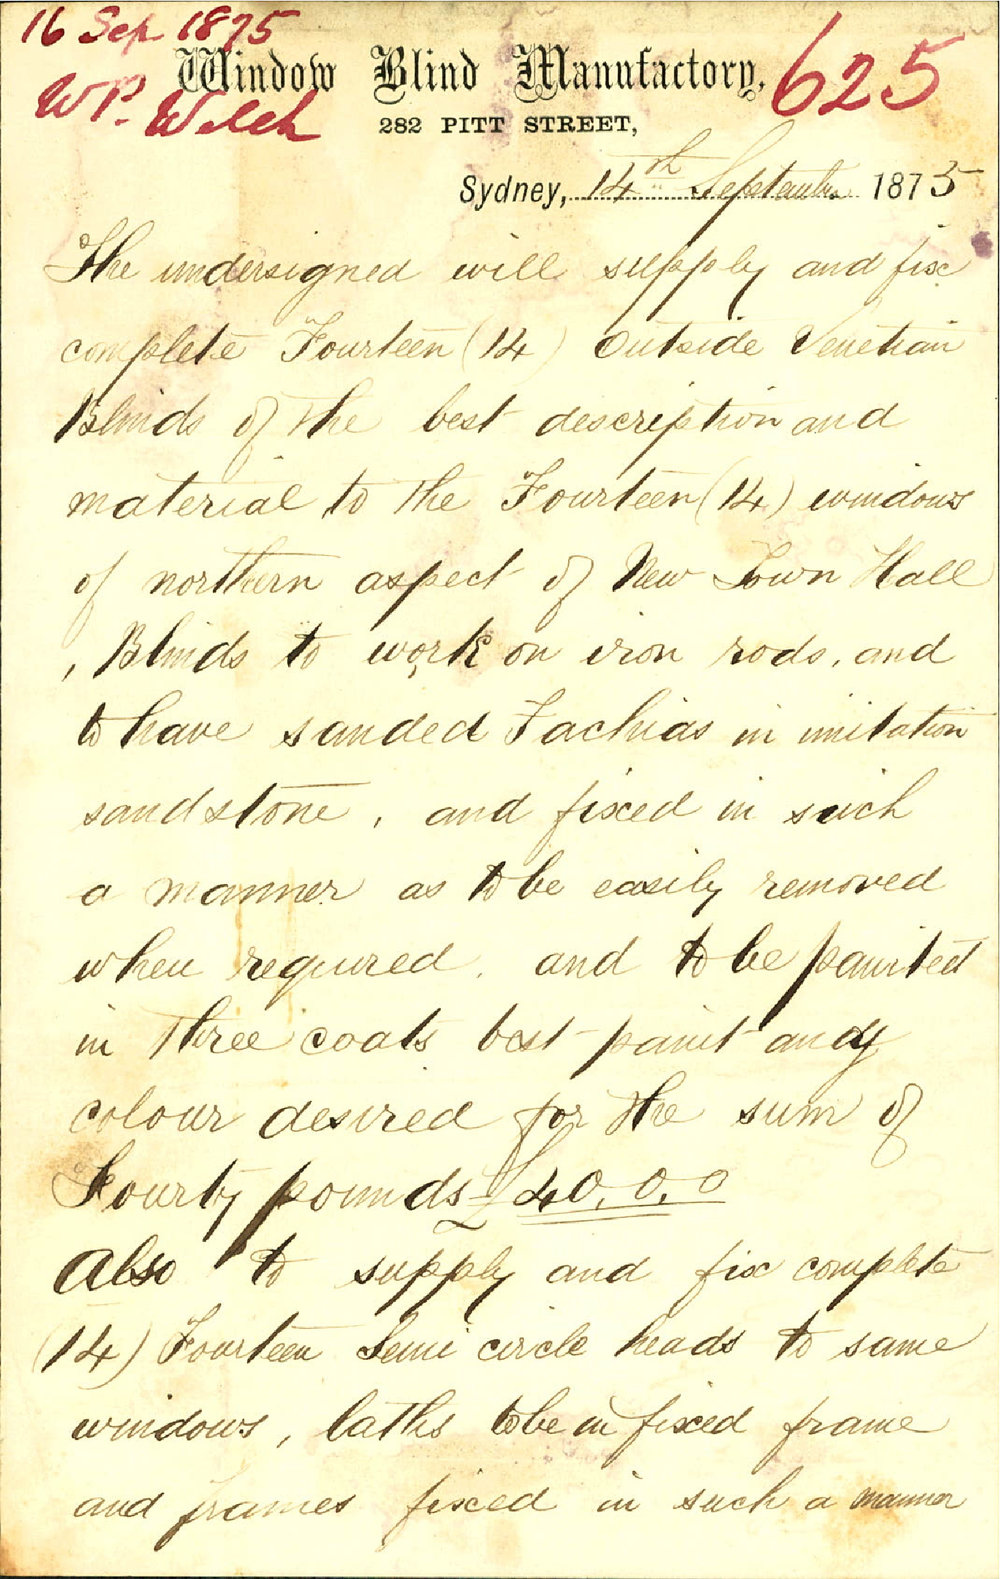 16 Sep 1875
W P. Welch
625
Window Blind Manufactory,
282 PITT STREET,
Sydney, 14th September 1875
The undersigned will supply and fix
complete Fourteen (14) Outside Venetian
Blinds of the best description and
material to the Fourteen (14) windows
of northern aspect of New Town Hall
, Blinds to work on iron rods, and
to have sanded Fachias in imitation
sandstone, and fixed in such
a manner as to be easily removed
when required. and to be painted
in three coats best paint and
colour desired for the sum of
Fourty pounds £40.0.0
Also to supply and fix complete
(14) Fourteen Semi circle heads to same
windows, laths to be in fixed frame
and frames fixed in such a manner